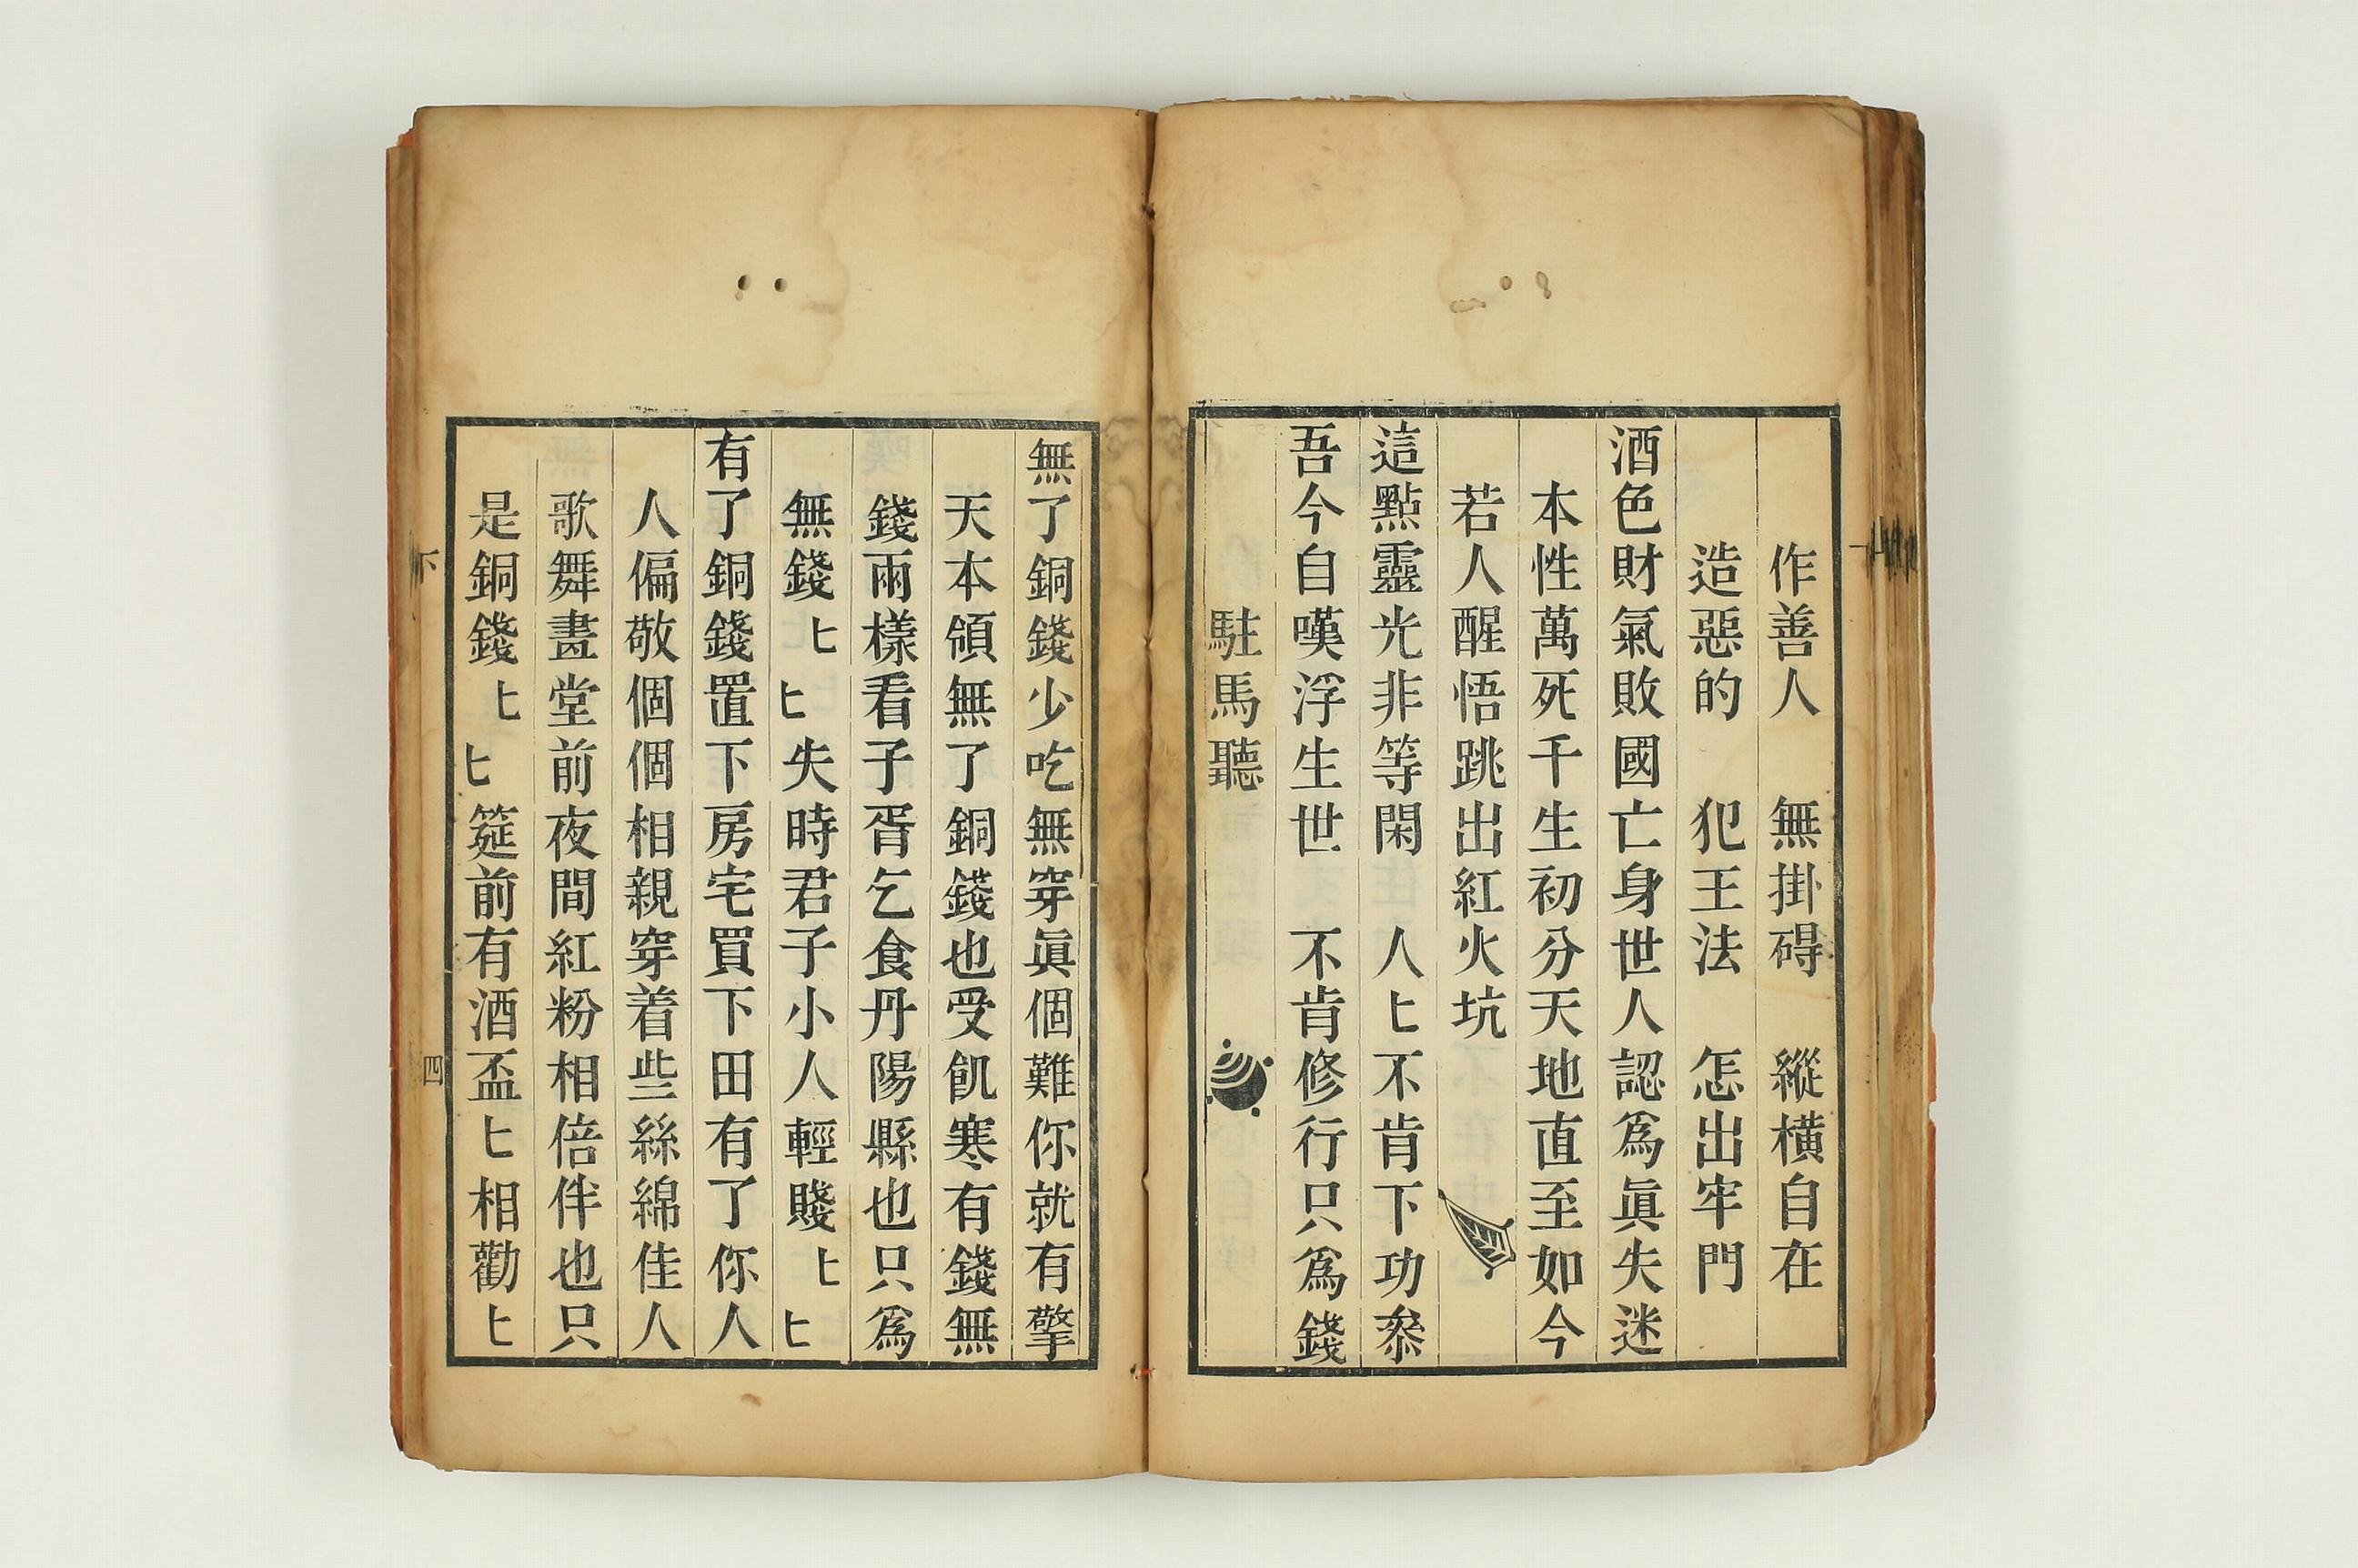 作善人　無掛碍　縱横自在
造惡的　犯王法　怎出牢門
酒色財氣敗國亡身世人認爲眞失迷
本性萬死千生初分天地直至如今
若人醒悟跳出紅火坑
這點靈光非等閑　人𠤎不肯下功叅
吾今自嘆浮生世　不肯修行只爲錢
駐馬聽
無了銅錢少吃無穿眞個難你就有擎
天本領無了銅錢也受飢寒有錢無
錢兩樣看子胥乞食丹陽縣也只爲
無錢𠤎𠤎失時君子小人輕賤𠤎𠤎
有了銅錢置下房宅買下田有了你人
人偏敬個個相親穿着些絲綿佳人
歌舞畫堂前夜間紅粉相倍伴也只
是銅錢𠤎𠤎筵前有酒盃𠤎相勸𠤎
下
四